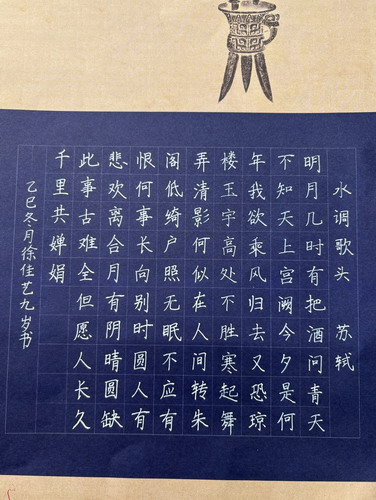 水调歌头 苏轼
明月几时有把酒问青天
不知天上宫阙今夕是何
年我欲乘风归去又恐琼
楼玉宇高处不胜寒起舞
弄清影何似在人间转朱
阁低绮户照无眠不应有
恨何事长向别时圆人有
悲欢离合月有阴晴圆缺
此事古难全但愿人长久
千里共婵娟
乙巳冬月徐佳艺九岁书